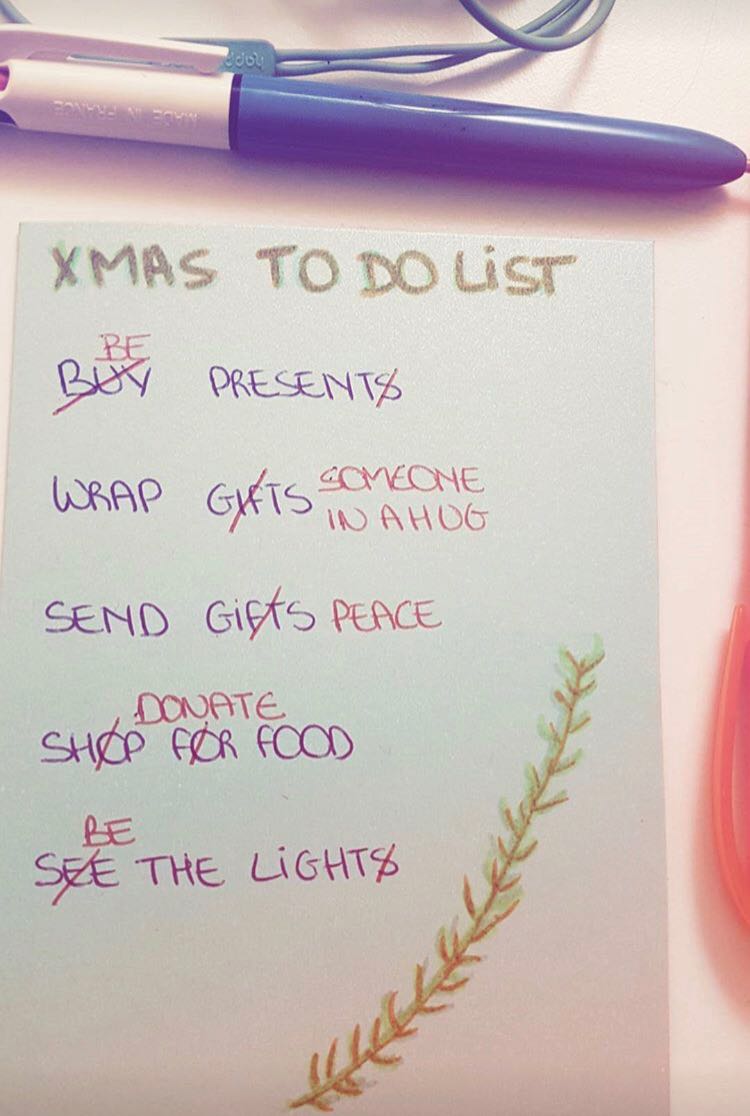 happy
MADE IN FRANCE
XMAS TO DO LiST
BE
BUY PRESENTS
WRAP GIFTS SOMEONE
IN A HUG
SEND GiFTS PEACE
DONATE
SHOP FOR FOOD
BE
SEE THE LiGHTS